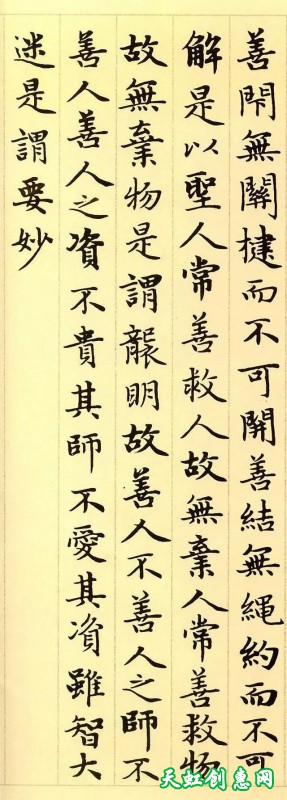 善閇無關楗而不可開善結無繩約而不可
解是以聖人常善救人故無棄人常善救物
故無棄物是謂襲明故善人不善人之師不
善人善人之資不貴其師不愛其資雖智大
迷是謂要妙
天虹创惠网